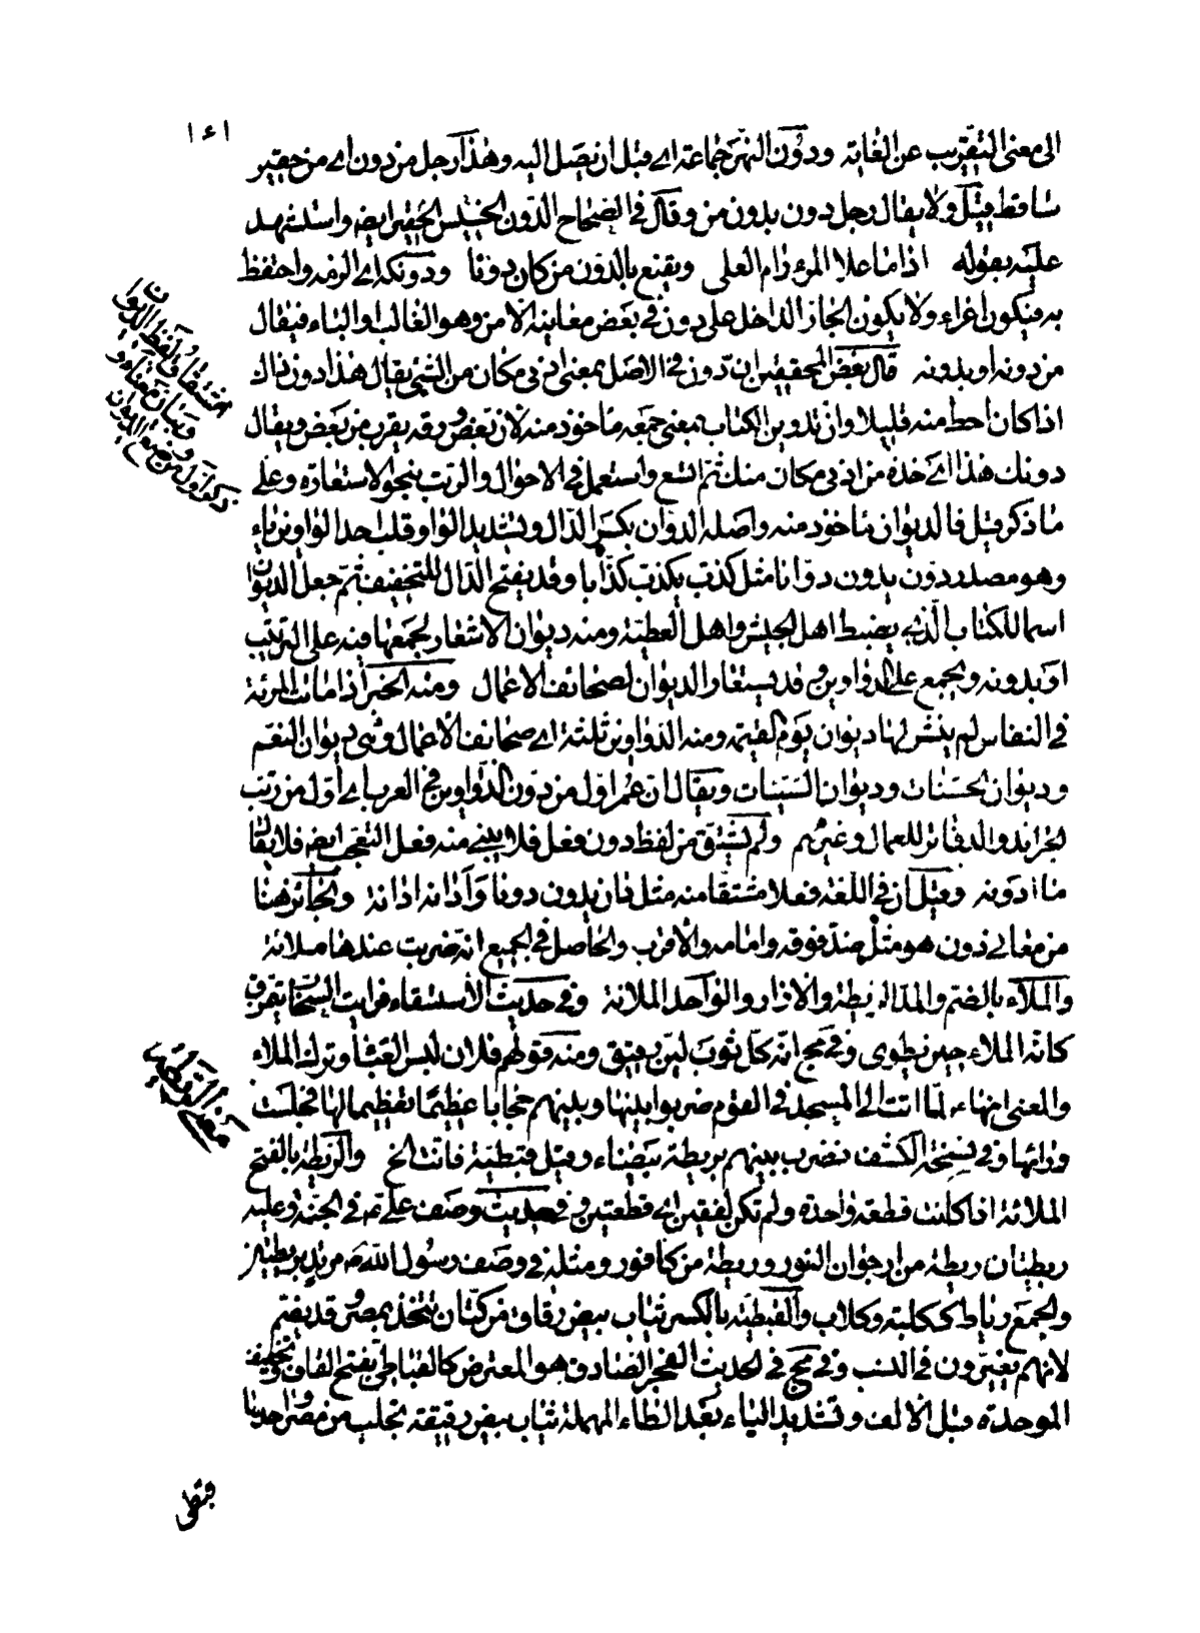 ١٤١
الى معنى التقريب عن الغاية ودون النهر جماعة اى قبل ان تصل اليه وهذا رجل من دون اى من حقير
ساقط قيل ولا يقال رجل دون بدون من وقال فى الصحاح الدون الخسيس الحقير ايضه واستشهد
عليه بقوله اذا ما علا المرء رام العلى ويقنع بالدون من كان دونا ودونكه اى الزمه واحتفظ
به فيكون اغراء ولا يكون الجاز الداخل على دون فى بعض معانيه الا من وهو الغالب او الباء فيقال
من دونه او بدونه قال بعض المحققين ان دون فى الاصل بمعنى ادنى مكان من الشئ يقال هذا دون ذاك
اذا كان احط منه قليلا وان تدوين الكتاب بمعنى جمعه ماخوذ منه لان بعض ورقه يقرب من بعض ويقال
دونك هذا اى خذه من ادنى مكان منك ثم اتسع واستعمل فى الاحوال والرتب بنحو الاستعارة وعلى
ما ذكر قيل فالديوان ماخوذ منه واصله الدوان بكسر الدال وتشديد الواو قلب احد الواوين ياء
وهو مصدر دون يدون دوانا مثل كذب يكذب كذابا وقد يفتح الدال للتخفيف ثم جعل الديوان
اسما للكتاب الذى يضبط اهل الجيش واهل العطية ومنه ديوان الاشعار لجمعها فيه على الترتيب
او بدونه ويجمع على الدواوين وقد يستعار الديوان لصحائف الاعمال ومنه الخبر اذا ماتت المرئة
فى النفاس لم ينشر لها ديوان يوم القيمة ومنه الدواوين ثلثة اى صحائف الاعمال وهى ديوان النعم
وديوان الحسنات وديوان السيئات ويقال ان عمر اول من دون الدواوين فى العرب اى اول من رتب
الجرائد والدفاتر للعمال وغيرهم ولم يشتق من لفظ دون فعل فلا يبنى منه فعل التعجب ايضه فلا يقال
ما ادونه وقيل ان فى اللغة فعلا مشتقا منه مثل دان يدون دونا وادانه ادانة والجائز هنا
من معانى دون هو مثل ضد فوقه وامامه والاقرب والحاصل فى الجميع انه ضربت عندها ملائة
والملاء بالضم والمد الريطة والازار والواحد الملائة وفى حديث الاستسقاء فرايت السحاب يتفرق
كانه الملاء حين تطوى وفى مج انه كل ثوب لين رقيق ومنه قولهم فلان لبس العباء وترك الملاء
والمعنى انهاء لما اتت الى المسجد فى القوم ضربوا بينها وبينهم حجابا عظيما تعظيما لها فجلست
ورائها وفى نسخة الكشف فضرب بينهم بريطة بيضاء وقيل قبطية فانت الخ والريطة بالفتح
الملائة اذا كانت قطعة واحدة ولم تكن لفقين اى قطعتين وفى حديث وصف على ع فى الجنة وعليه
ريطتان ريطة من ارجوان النور وريطة من كافور ومثله فى وصف رسول الله ص مرتد بريطتين
والجمع رياط ككلبة وكلاب والقبطية بالكسر ثياب بيض رقاق من كتان تتخذ بمصر وقد يضم
لانهم يغيرون فى النسب وفى مج فى الحديث الفجر الصادق هو المعترض كالقباطى بفتح القاف وتخفيف
الموحدة قبل الالف وتشديد الياء بعد الطاء المهملة ثياب بيض رقيقة تجلب من مصر واحدها
قبطى
اشتقاق لفظ الديوان
وبيان معناه و
ذكر اول من وضع الديوان
معنى القبطية